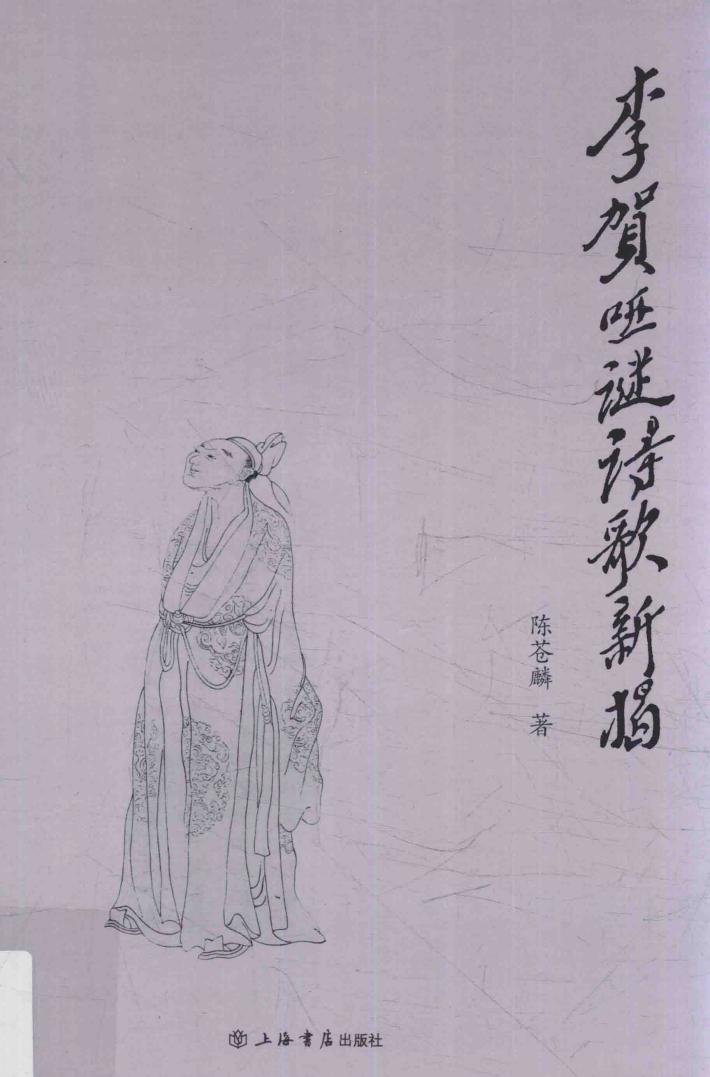 李賀哑謎詩歌新揭
陈苍麟 著
上海書店出版社